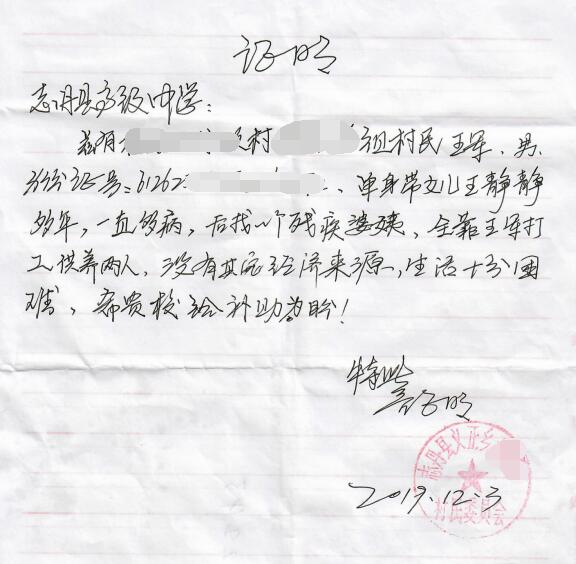 证明
志丹县高级中学：
兹有 村 组村民王军、男、
身份证号：61262 、单身带女儿王静静
多年，一直多病，后找一个残疾婆姨、全靠王军打
工供养两人，没有其它经济来源，生活十分困
难，希贵校给补助为盼！
特此
证明
志丹县义正乡
村民委员会
2019.12.3